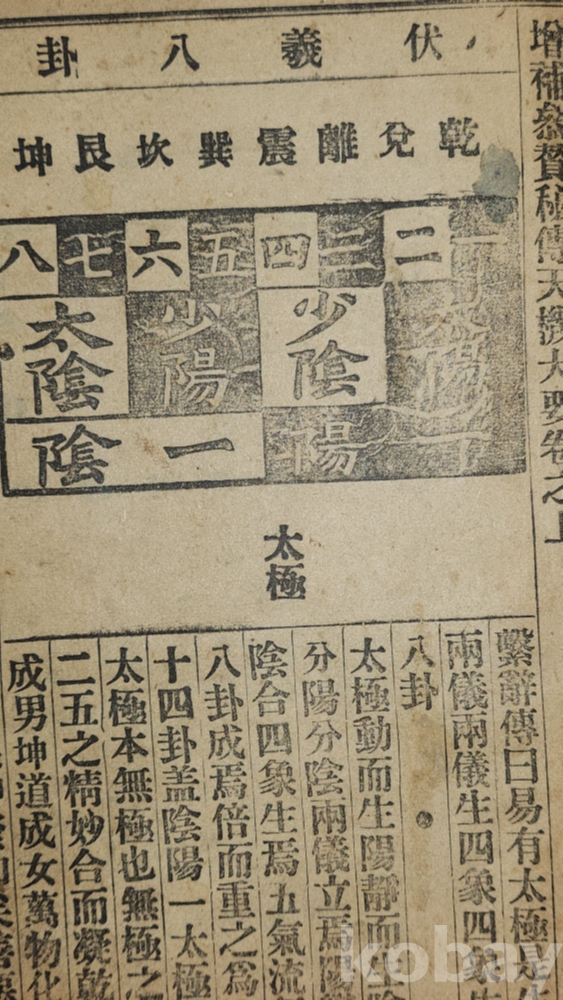 增補參贊秘傳天機大要卷之上
伏羲八卦
乾兌離震巽坎艮坤
一二三四五六七八
太陽少陰少陽太陰
陽一陰
太極
繫辭傳曰易有太極是生
兩儀兩儀生四象四象
八卦
太極動而生陽靜而生
分陽分陰兩儀立焉陽
陰合四象生焉五氣流
八卦成焉倍而重之爲
十四卦盖陰陽一太極
太極本無極也無極之
二五之精妙合而凝乾
成男坤道成女萬物化
kobay